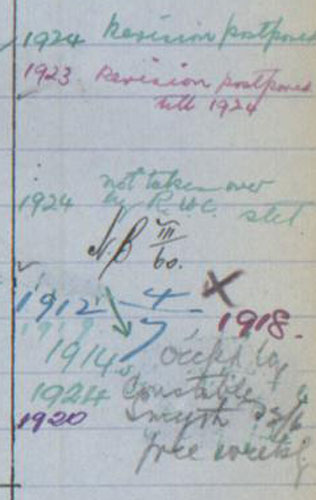 1924 Revision postponed
1923 Revision postponed
till 1924
not taken over
1924 by R.W.C. stet
N.B VIII/60.
1912 4 X
1918.
1919 7
1914 Occpd by
1924 Constable
1920 Smyth 2/6
free weekly